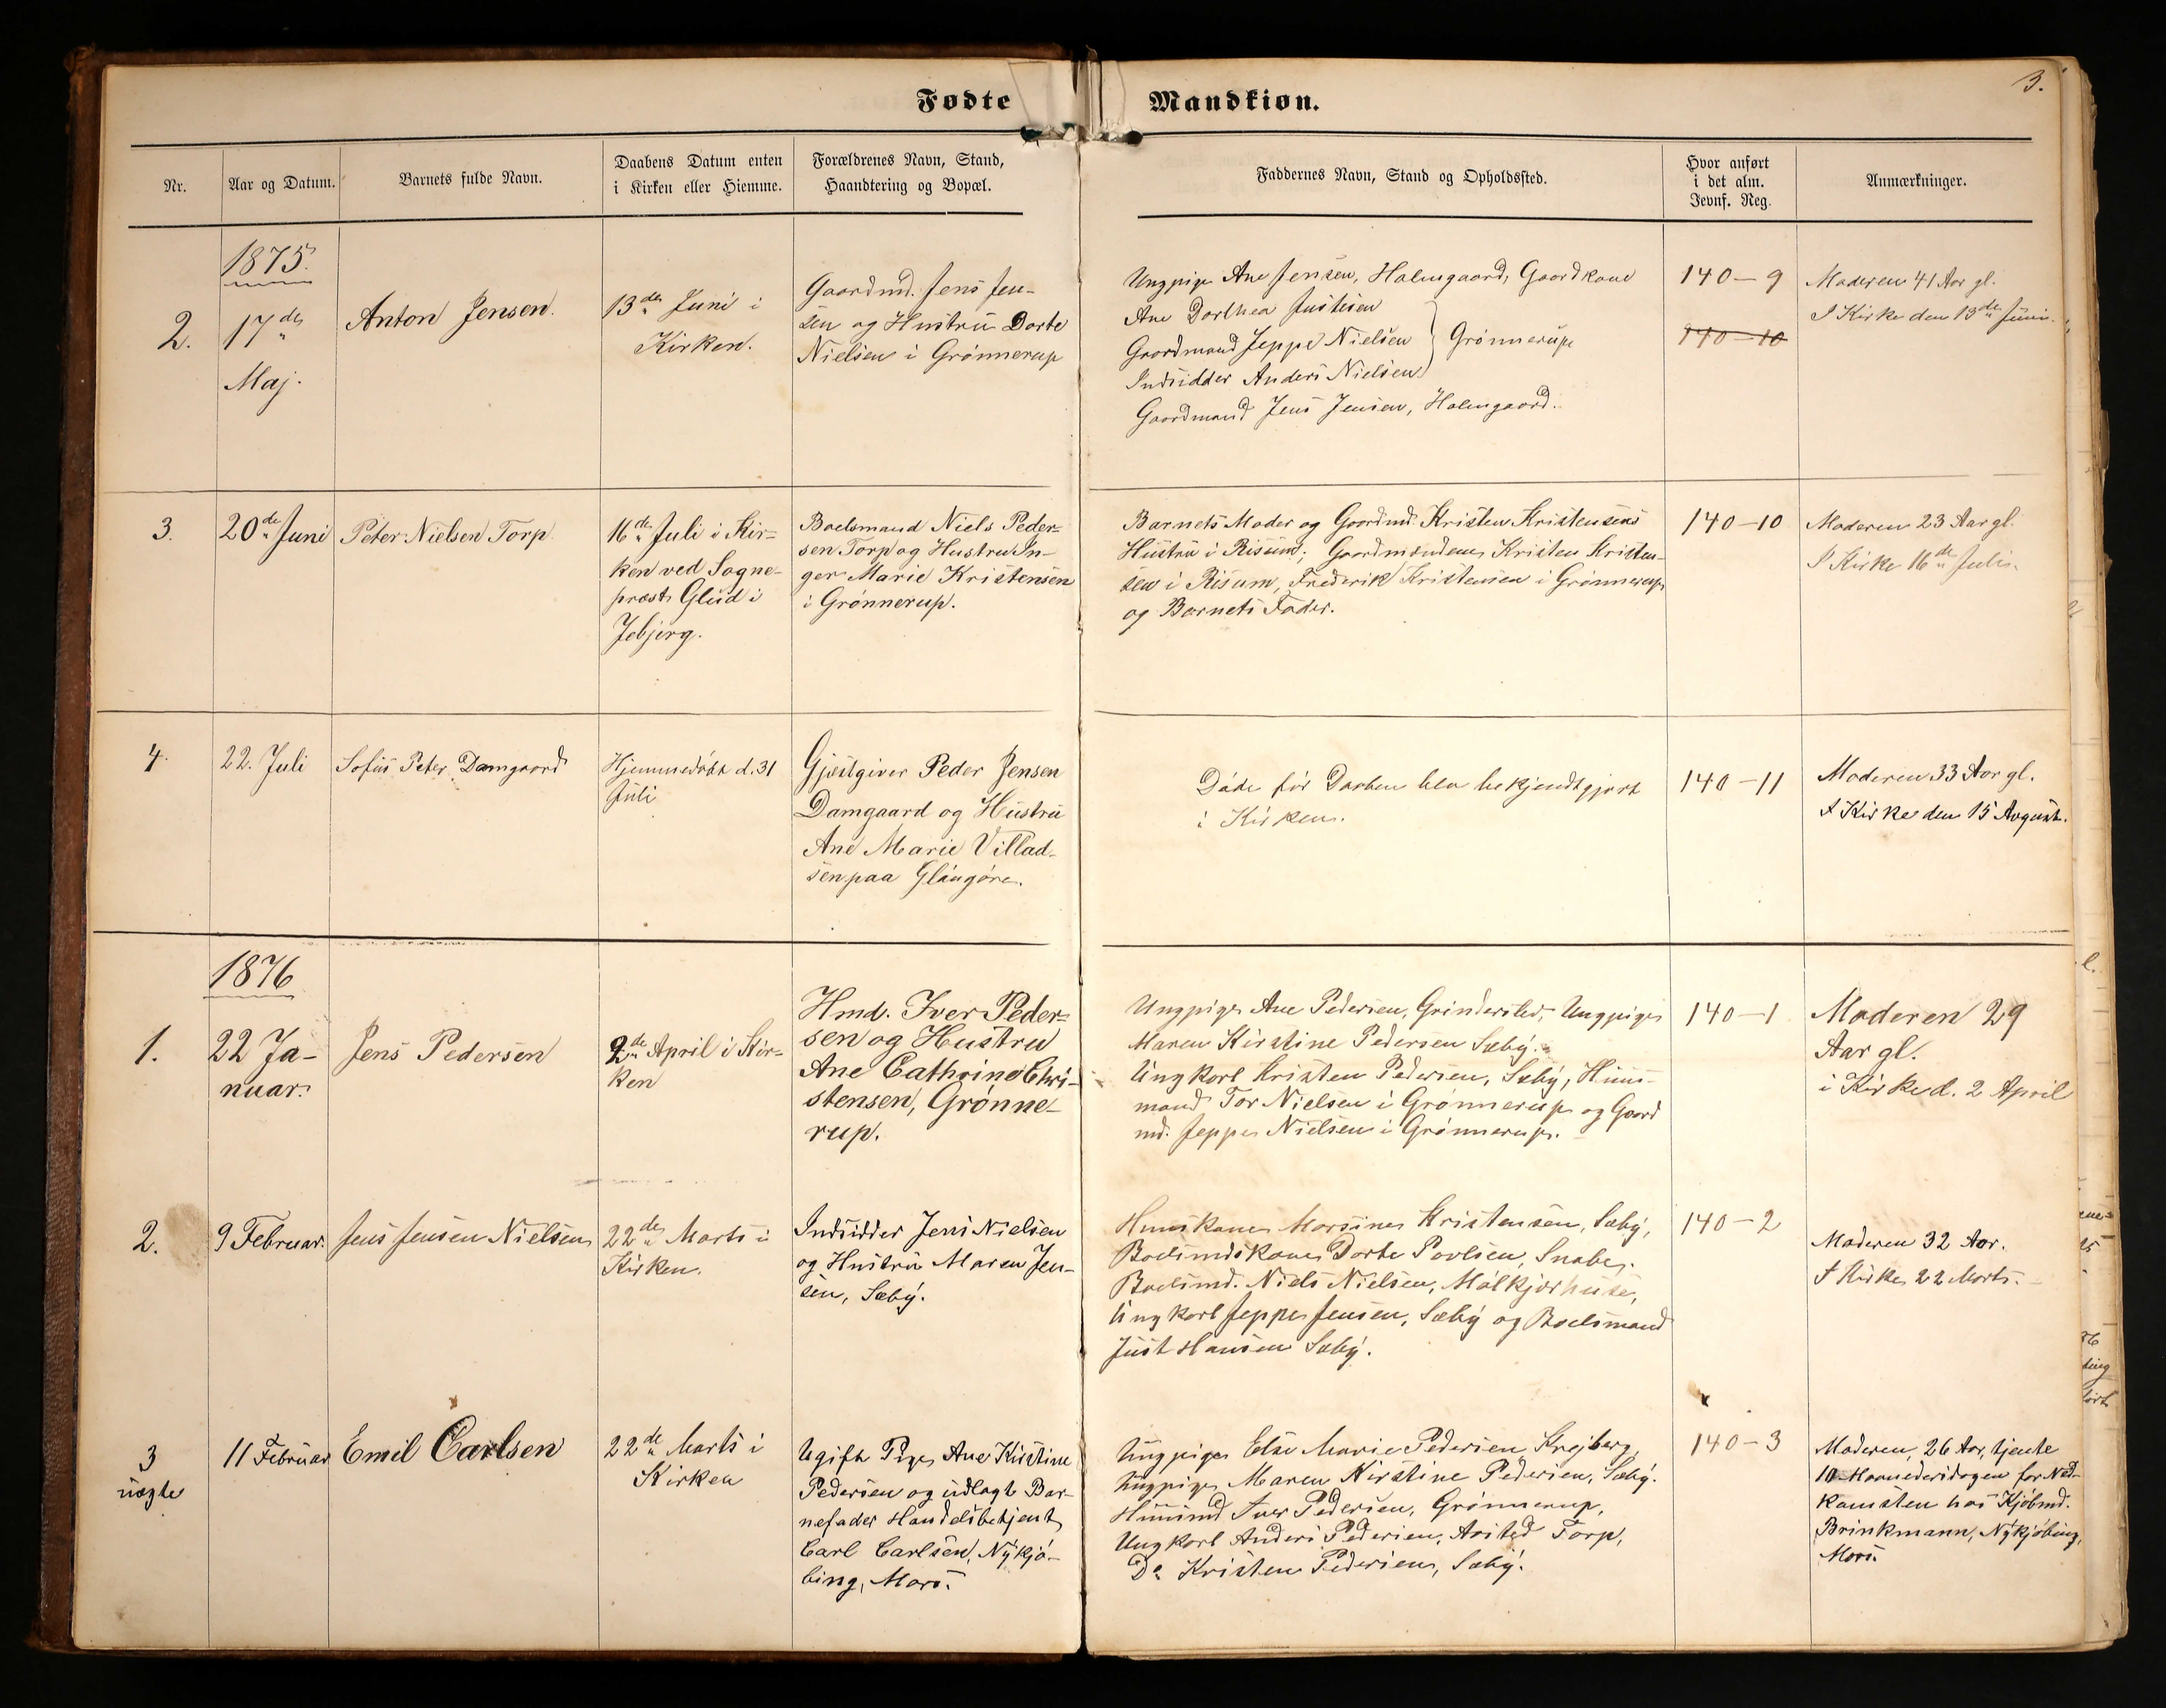 3.
Fødte Mandkiøn.
Nr.
Aar og Datum.
Barnets fulde Navn.
Daabens Datum enten
i Kirken eller Hiemme.
Forældrenes Navn, Stand,
Haandtering og Bopæl.
Faddernes Navn, Stand og Opholdssted.
Hvor anført
i det alm.
Jevnf. Reg.
Anmærkninger.
1875.
2.
17de
Maj.
Anton Jensen.
13de Juni i
Kirken.
Gaardmd. Jens Jen-
sen og Hustru Dorte
Nielsen i Grønnerup
Ungpige Ane Jensen, Halmgaard, Gaardkone
Ane Dorthea Justesen
Gaardmand Jeppe Nielsen } Grønnerup
Indsidder Anders Nielsen
Gaardmand Jens Jensen, Halmgaard.
140-9
140-10
Moderen 41 Aar gl.
I Kirke den 13de Juni.
3.
20de Juni
Peter Nielsen Torp
16de Juli i Kir-
ken ved Sogne-
præst Glud i
Jebjerg.
Boelsmand Niels Peder-
sen Torp og Hustru In-
ger Marie Kristensen
i Grønnerup.
Barnets Moder og Gaardmd. Kristen Kristensens
Hustru i Risum; Gaardmændene Kristen Kristen-
sen i Risum, Frederik Kristensen i Grønnerup
og Barnets Fader.
140-10
Moderen 23 Aar gl.
I Kirke 16de Juli.
4.
22. Juli
Sofus Peter Damgaard
Hjemmedøbt d. 31
Juli
Gjæstgiver Peder Jensen
Damgaard og Hustru
Ane Marie Villad-
sen paa Glüngøre.
Døde før Daaben blev bekjendtgjort
i Kirken.
140-11
Moderen 33 Aar gl.
I Kirke den 15 Avgust.
1876
1.
22 Ja-
nuar.
Jens Pedersen
2de April i Kir-
ken
Hmd. Iver Peder-
sen og Hustru
Ane Cathrine Chri-
stensen, Grønne-
rup.
Ungpige Ane Pedersen, Grinderslev, Ungpige
Maren Kirstine Pedersen Sæby.
Ungkarl Kristen Pedersen, Sæby, Huus-
mand Tor Nielsen i Grønnerup og Gaard
md. Jeppe Nielsen i Grønnerup.
140-1
Moderen 29
Aar gl.
i Kirke d. 2 April
2.
9 Februar.
Jens Jensen Nielsen
22de Marts i
Kirken.
Indsidder Jens Nielsen
og Hustru Maren Jen-
sen, Sæby.
Huuskone Marsine Kristensen, Sæby,
Boelsmdskone Dorte Povlsen, Snabe.
Boelsmd. Niels Nielsen, Mølkjærhuse,
Ungkarl Jeppe Jensen, Sæby og Boelsmand
Just Hansen Sæby.
140-2
Moderen 32 Aar.
I Kirke 22 Marts.
3
uægte
11 Februar
Emil Carlsen
22de Marts i
Kirken
Ugift Pige Ane Kirstine
Pedersen og udlagt Bar-
nefader Handelsbetjent
Carl Carlsen, Nykjø-
bing, Mors.
Ungpige Else Marie Pedersen, Krejberg,
Ungpige Maren Kirstine Pedersen, Sæby.
Huusmd Iver Pedersen, Grønnerup,
Ungkarl Anders Pedersen, Torp,
Do Kristen Pedersen, Sæby.
140-3
Moderen, 26 Aar, tjente
10 Maanedersdagen før Ned-
komsten hos Kjøbmd.
Brinkmann, Nykjøbing,
Mors.